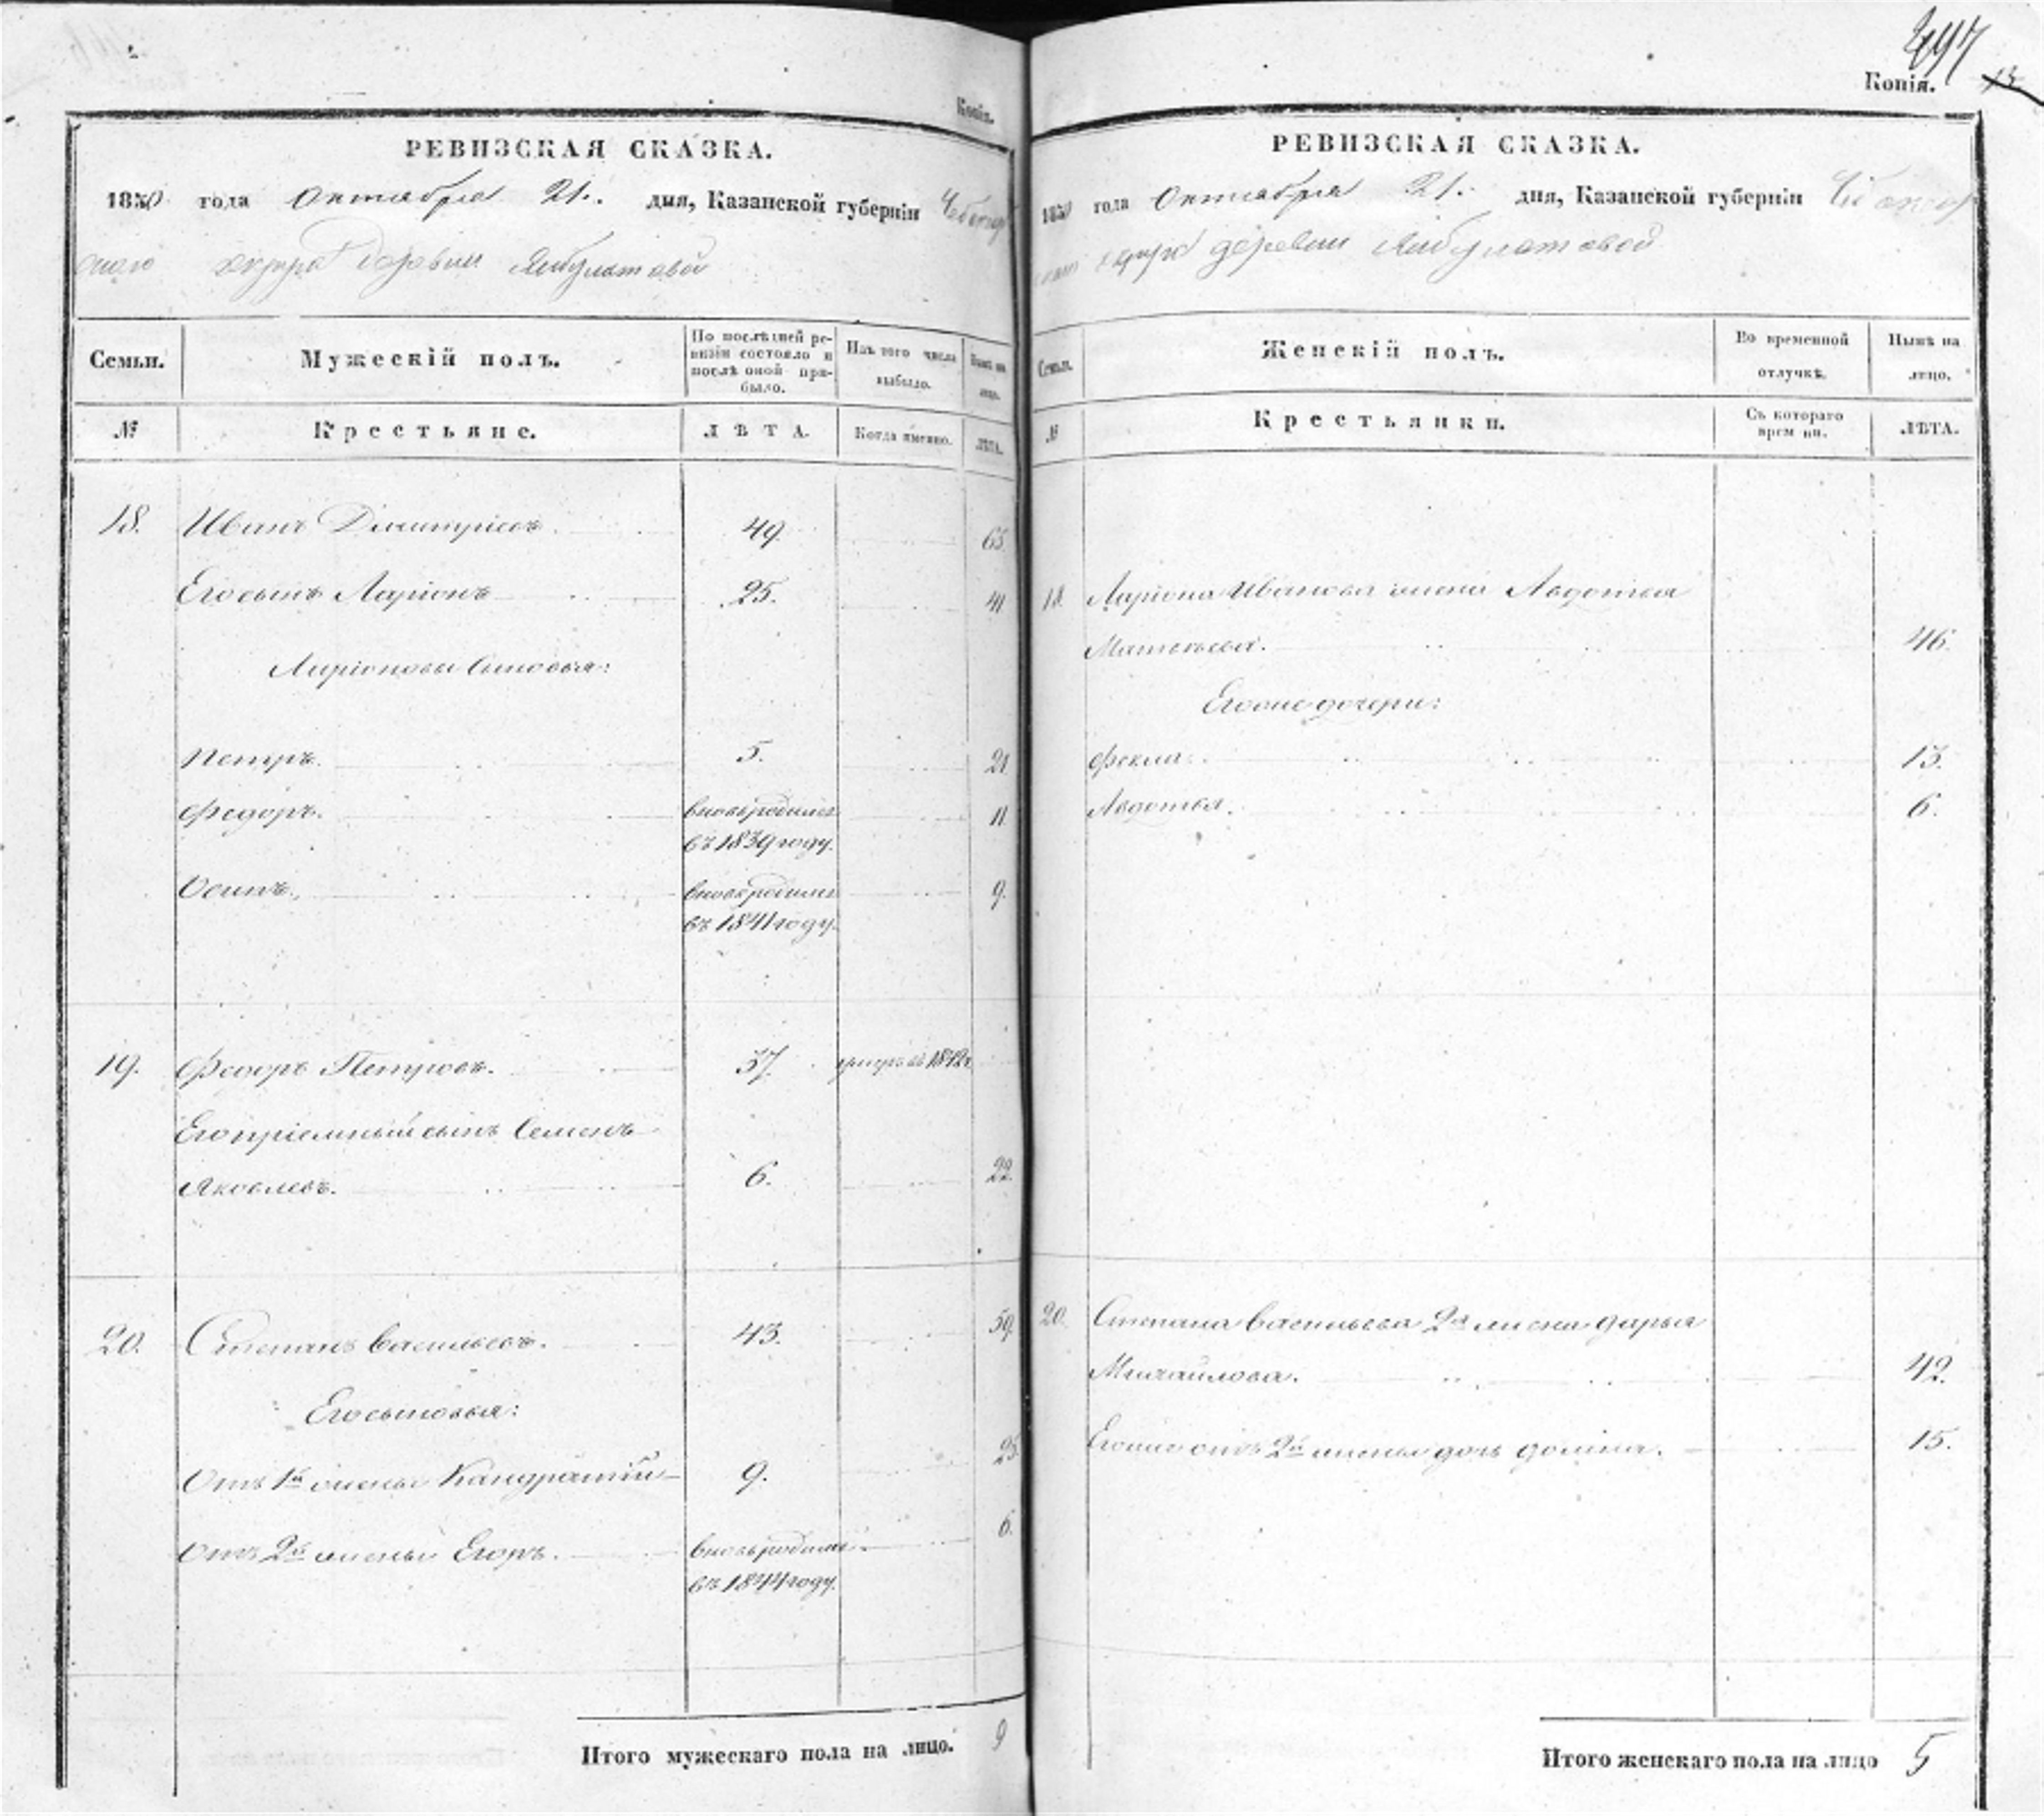 Копія.
РЕВИЗСКАЯ СКАЗКА.
1850 года Октября 21. дня, Казанской губерніи Чебоксар
скаго деревни Янбулатовой
Семьи. Мужескій полъ. По послѣдней ре- Изъ того числа Нынѣ на
визіи состояло и выбыло. лицо.
послѣ оной при-
было.
№ Крестьяне. ЛѢТА. Когда именно. ЛѢТА.
18. Иванъ Димитріевъ 49. 65.
Его сынъ Ларіонъ 25. 41
Ларіоновы сыновья:
Петръ. 5. 21
Федоръ. вновь родился 11
въ 1839 году.
Осипъ. вновь родился 9.
въ 1841 году.
19. Федоръ Петровъ. 37. въ 1842
Его пріемный сынъ Семенъ
Яковлевъ. 6. 22.
20. Степанъ Васильевъ. 43. 59
Его сыновья:
Отъ 1й жены Кандратій 9. 25
Отъ 2й жены Егоръ. вновь родился 6.
въ 1844 году.
Итого мужескаго пола на лицо. 9
Копія.
РЕВИЗСКАЯ СКАЗКА.
1850 года Октября 21. дня, Казанской губерніи Чебоксар
скаго деревни Янбулатовой
Семьи. Женскій полъ. Во временной Нынѣ на
отлучкѣ. лицо.
№ Крестьянки. Съ котораго ЛѢТА.
времени.
18. Ларіона Иванова жена Авдотья
Матвѣева. 46.
Его же дочери:
Фекла. 13.
Авдотья. 6.
20. Степана Васильева 2я жена Дарья
Михайлова. 42.
Его же отъ 2й жены дочь 15.
Итого женскаго пола на лицо 5